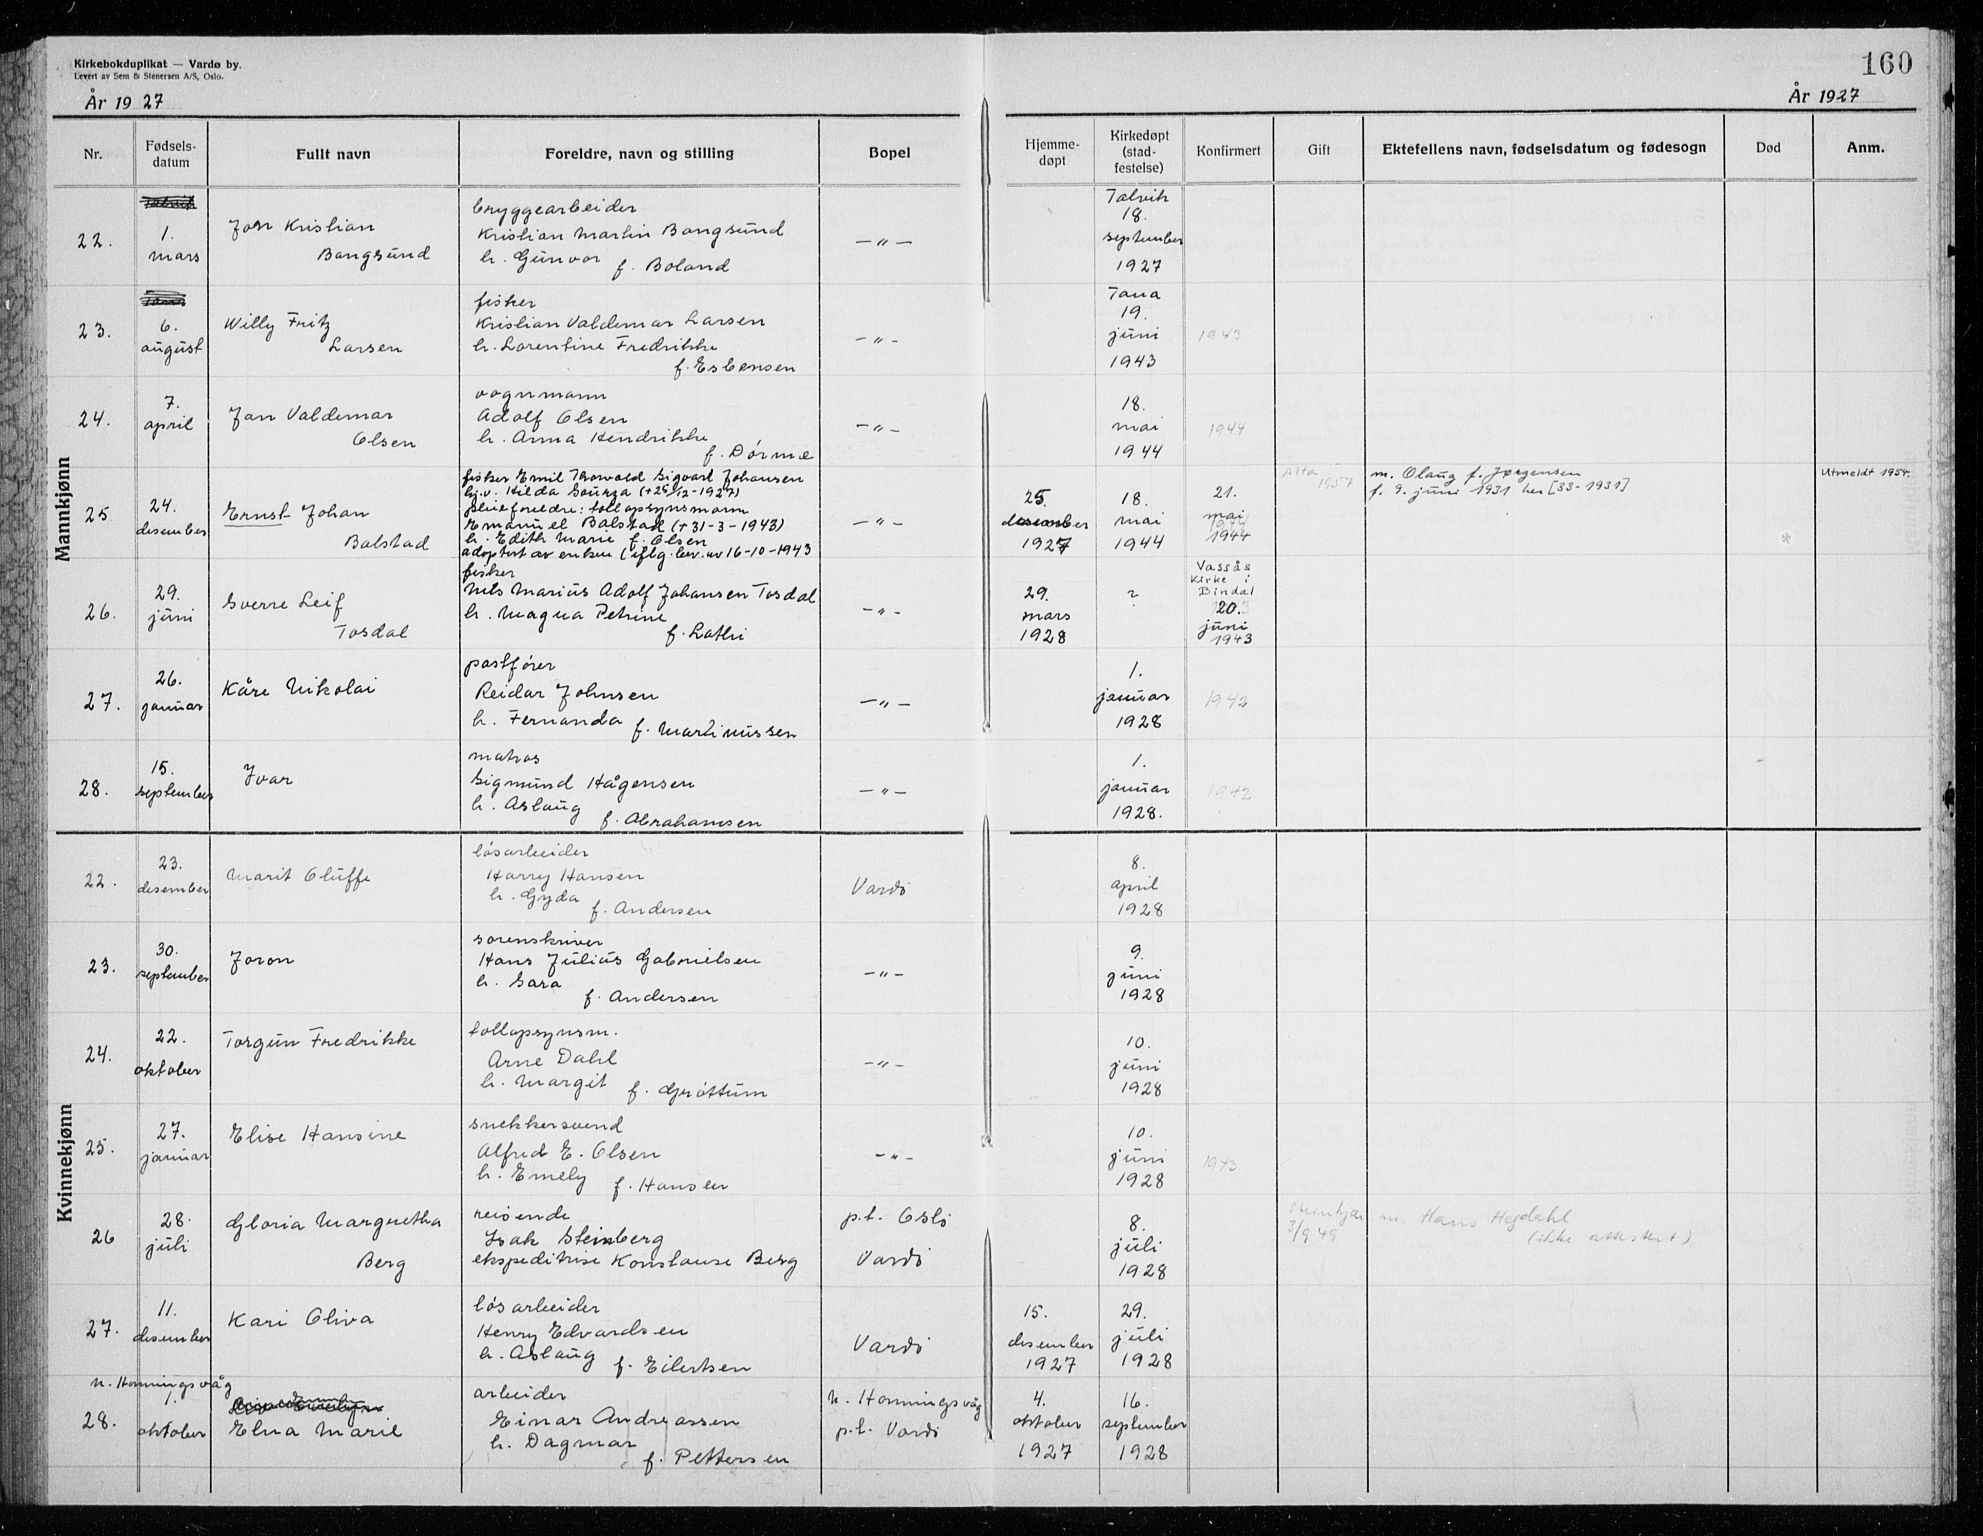 Kirkebokduplikat — Vardø by.
Levert av Sem & Stenersen A/S, Oslo.
År 1927
160
År 1927
Nr.
Fødsels-
datum
Fullt navn
Foreldre, navn og stilling
Bopel
Hjemme-
døpt
Kirkedøpt
(stad-
festelse)
Konfirmert
Gift
Ektefellens navn, fødselsdatum og fødesogn
Død
Anm.
Mannkjønn
22.
1.
mars
Jan Kristian
Bangsund
bryggearbeider
Kristian Martin Bangsund
h. Gunvor f. Boland
—〃—
Talvik
18.
september
1927
23.
6.
august
Willy Fritz
Larsen
fisker
Kristian Valdemar Larsen
h. Lorentine Fredrikke
f. Esbensen
—〃—
Tana
19.
juni
1943
1943
24.
7.
april
Jan Valdemar
Olsen
vognmann
Adolf Olsen
h. Anna Hendrikke
f. Dørmæ
—〃—
18.
mai
1944
1944
25
24.
desember
Ernst Johan
Balstad
fisker Emil Thorvald Sigvart Johansen
Hilda (+25/12-1927)
pleieforeldre: tollopsynsmann
Emanuel Balstad (+31-3-1943)
h. Edith Marie f. Olsen
adoptert av enken (iflg. bev. av 16-10-1943
—〃—
25.
desember
1927
18.
mai
1944
21.
mai
1944
Alta
1957
m. Olaug f. Jørgensen
f. 9. juni 1931 her [33-1931]
Utmeldt 1954.
26.
29.
juni
Sverre Leif
Tosdal
fisker
Nils Marius Adolf Johansen Tosdal
h. Magna Petrine
f. Lathi
—〃—
29.
mars
1928
?
Vassås
Kirke i
Bindal
20.
juni
1943
27.
26.
januar
Kåre Nikolai
postfører
Reidar Johnsen
h. Fernanda f. Martinussen
—〃—
1.
januar
1928
1942
28.
15.
september
Ivar
matros
Sigmund Hågensen
h. Aslaug
f. Abrahamsen
—〃—
1.
januar
1928.
1942
Kvinnekjønn
22.
23.
desember
Marit Oluffe
løsarbeider
Harry Hansen
h. Gyda
f. Andersen
Vardø
8.
april
1928
23.
30.
september
Joron
sorenskriver
Hans Julius Gabrielsen
h. Sara
f. Andersen
—〃—
9.
juni
1928
24.
22.
oktober
Torgun Fredrikke
tollopsynsm.
Arne Dahl
h. Margit f. Grøttum
—〃—
10.
juni
1928
25.
27.
januar
Elise Hansine
snekkersvend
Alfred E. Olsen
h. Emely f. Hansen
—〃—
10.
juni
1928
1943
26
28.
juli
Gloria Margretha
Berg
reisende
Isak Steinberg
ekspeditrise Konstanse Berg
p.t. Oslo
Vardø
8.
juli
1928
Steinkjer
3/9 49
m. Hans Hegdahl
(ikke attestert)
27.
11.
desember
Kari Oliva
løsarbeider
Henry Edvardsen
h. Aslaug f. Eilertsen
Vardø
15.
desember
1927
29.
juli
1928
28.
n. Honningsvåg
1.
oktober
Elna Marie
arbeider
Einar Andreassen
h. Dagmar
f. Pettersen
n. Honningsvåg
p.t. Vardø
4.
oktober
1927
16.
september
1928